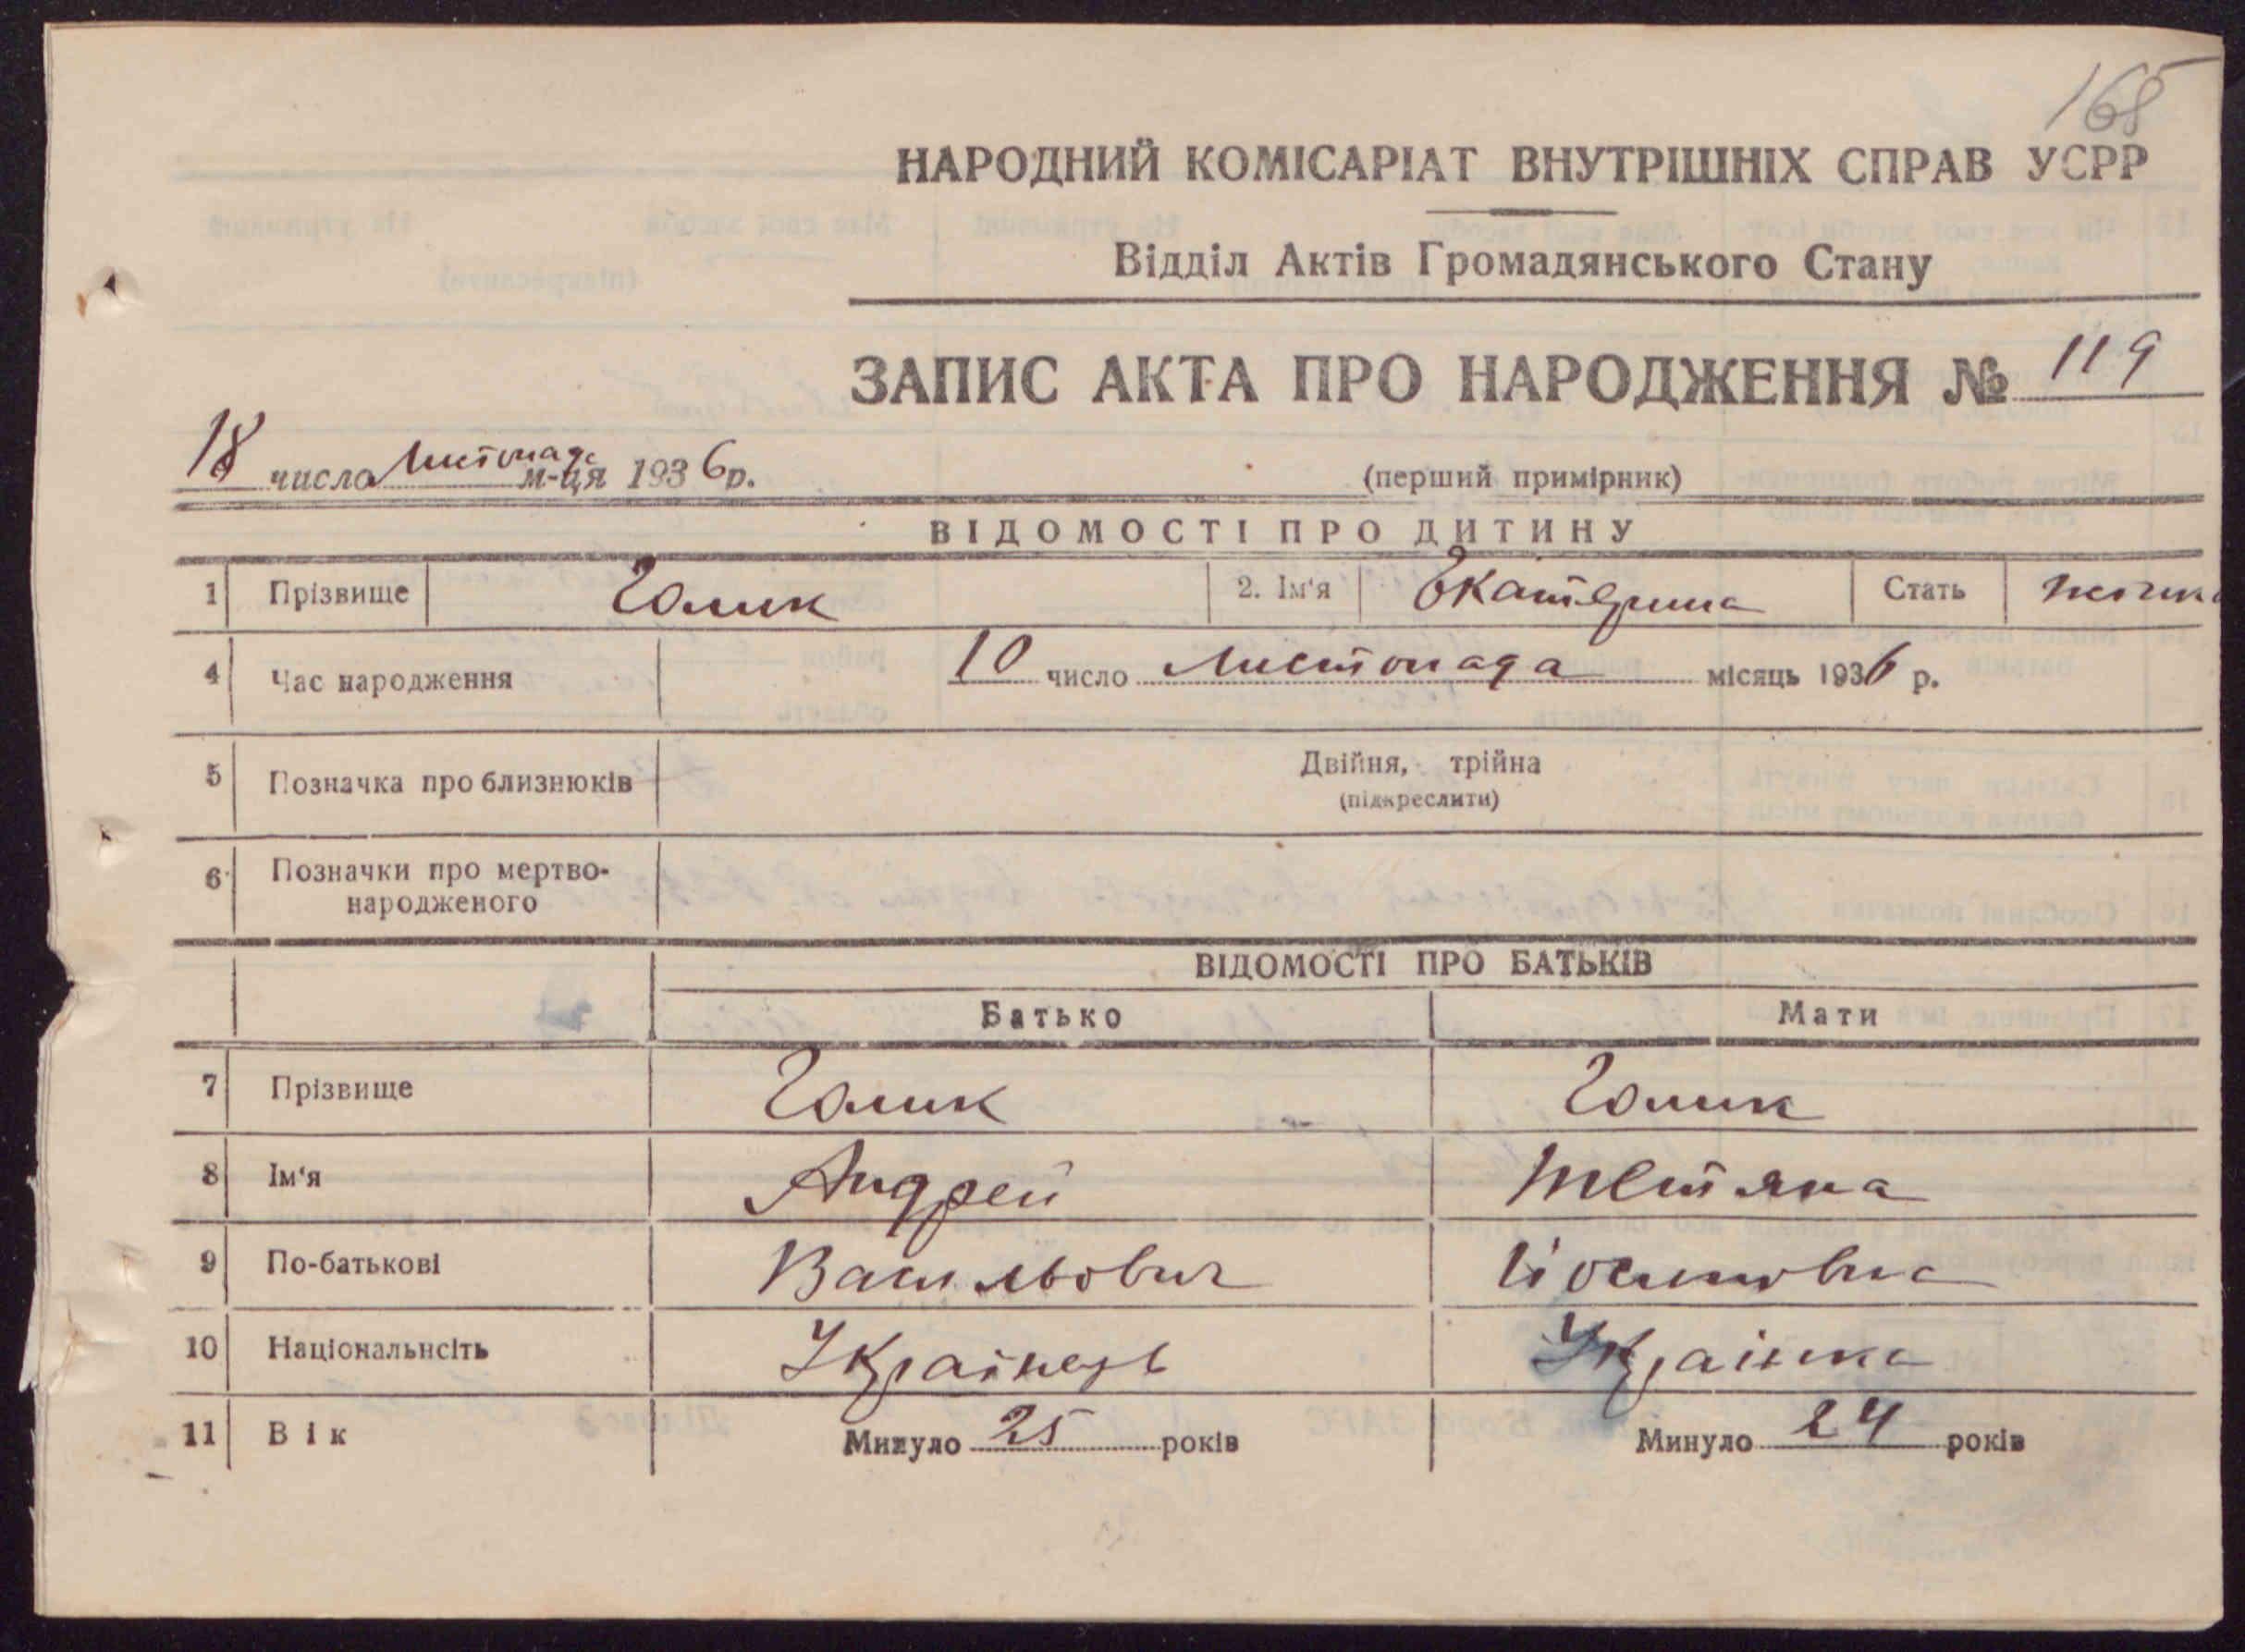 168
НАРОДНИЙ КОМІСАРІАТ ВНУТРІШНІХ СПРАВ УСРР
Відділ Актів Громадянського Стану
ЗАПИС АКТА ПРО НАРОДЖЕННЯ № 119
18 число Листопада м-ця 1936 р.
(перший примірник)
ВІДОМОСТІ ПРО ДИТИНУ
1 Прізвище Голик 2. Ім'я Екатерина Стать
4 Час народження 10 число Листопада місяць 1936 р.
5 Позначка про близнюків Двійня, трійна
(підкреслити)
6 Позначки про мертво-
народженого
ВІДОМОСТІ ПРО БАТЬКІВ
Батько Мати
7 Прізвище Голик Голик
8 Ім'я Андрей Тетяна
9 По-батькові Васильович Йосиповна
10 Національнсіть Українець Українка
11 Вік Минуло 25 років Минуло 24 років